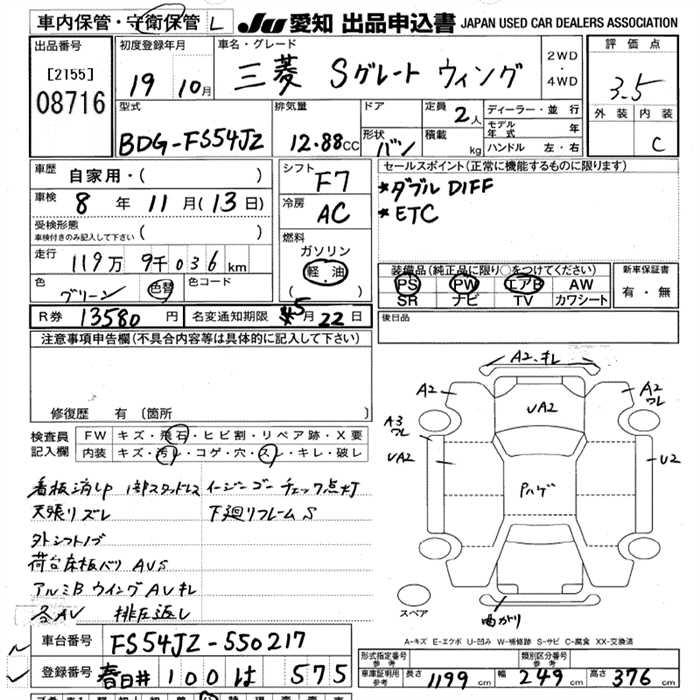 車内保管・守衛保管 L JU 愛知 出品申込書 JAPAN USED CAR DEALERS ASSOCIATION
出品番号 初度登録年月 車名・グレード 評価点
[2155]
08716
19 10月 三菱 Sグレート ウィング 2WD ・ 4WD
3.5
外装 内装
C
型式 排気量 ドア 定員 2人 ディーラー・並行
BDG-FS54JZ 12.88CC 形状 バン 積載 kg モデル年式 年
ハンドル 左・右
車歴 自家用・( )
車検 8年 11月(13日)
受検形態
車検付きのみ記入して下さい ( )
走行 119万 9千 036km
色 グリーン 色替 色コード
シフト F7
冷房 AC
燃料
ガソリン
軽油
( )
セールスポイント(正常に機能するものに限ります)
*ダブルDIFF
*ETC
装備品(純正品に限り○をつけてください) 新車保証書
PS PW エアB AW 有・無
SR ナビ TV カワシート
R券 13580円 名変通知期限 5月22日
後日品
注意事項申告欄(不具合内容等は具体的に記入して下さい)
修復歴 有 〔箇所 〕
検査員記入欄 FW キズ・飛石・ヒビ割・リペア跡・X要
内装 キズ・汚レ・コゲ・穴・スレ・キレ・破レ
看板済UP 1部スタッドレス イージーゴー チェック点灯
天張りズレ 下廻リフレームS
外シフトノブ
荷台床板ベリ AVS
アルミB ウイングAVキレ
各AV 排圧返し
A2.キレ
A2
UA2
A2
ワレ
A3
ワレ
UA2
U2
Pハゲ
曲がり
スペア
A-キズ E-エクボ U-凹み W-補修跡 S-サビ C-腐食 XX-交換済
車台番号 FS54JZ-550217
登録番号 春日井 100 は 575
形式指定番号 参考 類別区分番号 参考
車庫証明用 参考 長さ 1199cm 幅 249cm 高さ 376cm